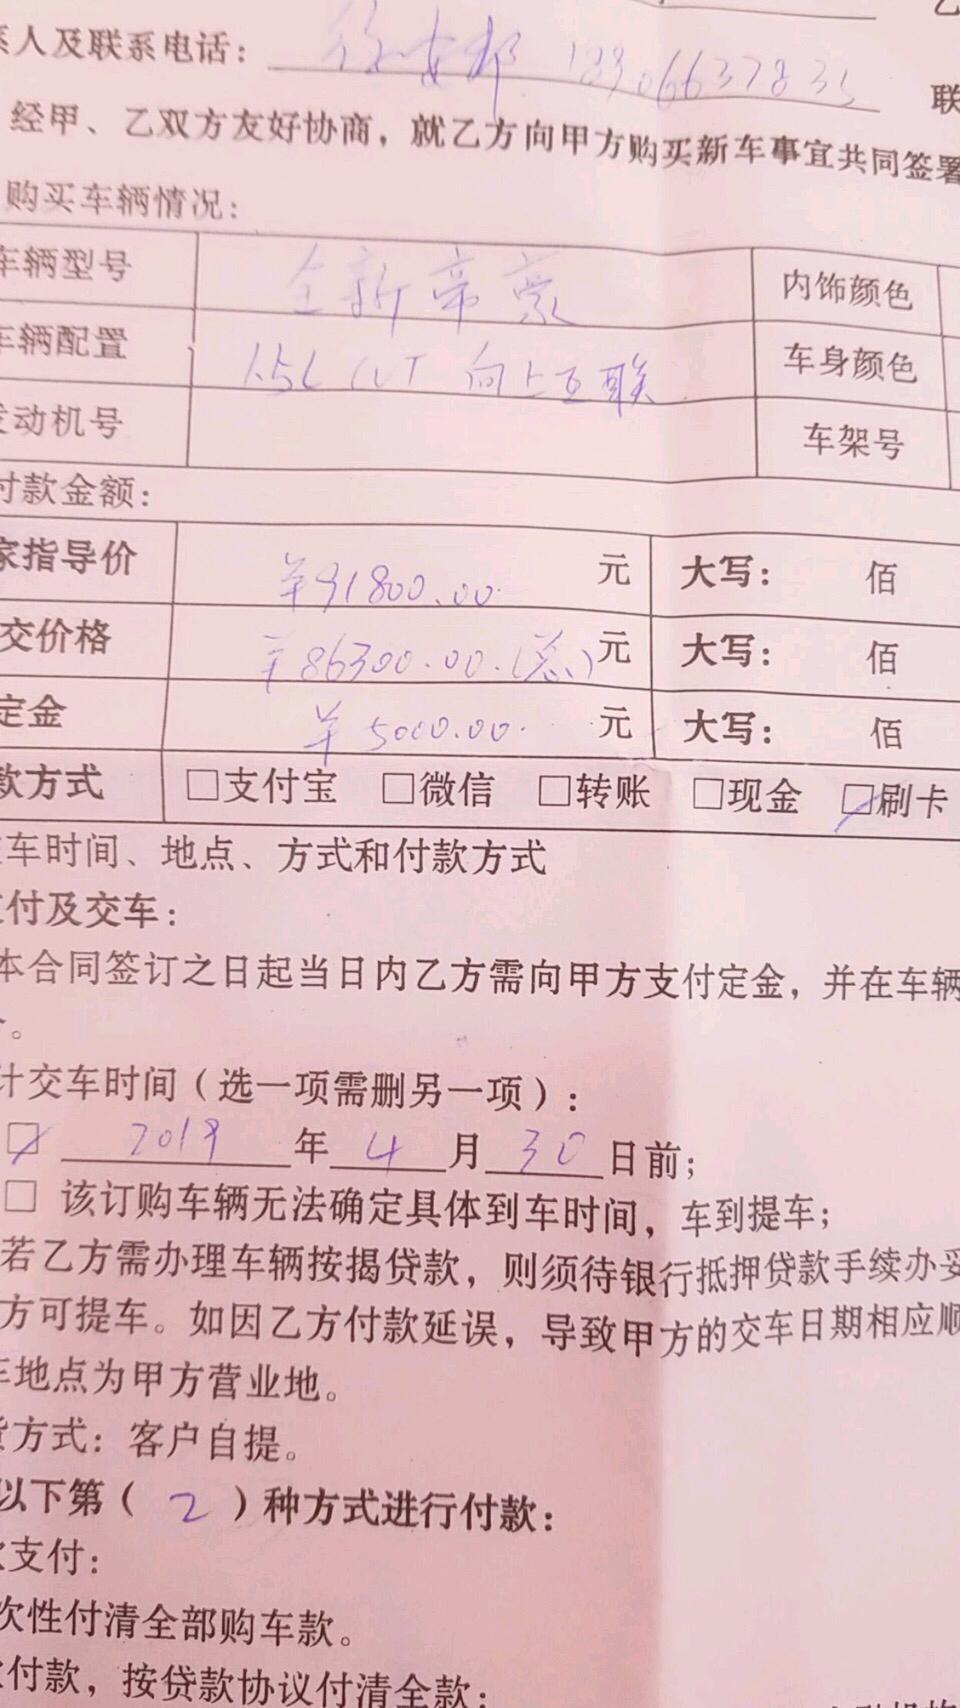 系人及联系电话： 13906637835 联
经甲、乙双方友好协商，就乙方向甲方购买新车事宜共同签署
购买车辆情况：
车辆型号 全新帝豪 内饰颜色
车辆配置 1.5L CVT 向上互联 车身颜色
发动机号 车架号
付款金额：
家指导价 ￥91800.00 元 大写： 佰
交价格 ￥86300.00.(总) 元 大写： 佰
定金 ￥5000.00 元 大写： 佰
款方式 □支付宝 □微信 □转账 □现金 ☑刷卡
车时间、地点、方式和付款方式
付及交车：
本合同签订之日起当日内乙方需向甲方支付定金，并在车辆
。
计交车时间（选一项需删另一项）：
☑ 2019 年 4 月 30 日前；
□ 该订购车辆无法确定具体到车时间，车到提车；
若乙方需办理车辆按揭贷款，则须待银行抵押贷款手续办妥
方可提车。如因乙方付款延误，导致甲方的交车日期相应顺
车地点为甲方营业地。
货方式：客户自提。
以下第（ 2 ）种方式进行付款：
款支付：
次性付清全部购车款。
付款，按贷款协议付清全款；